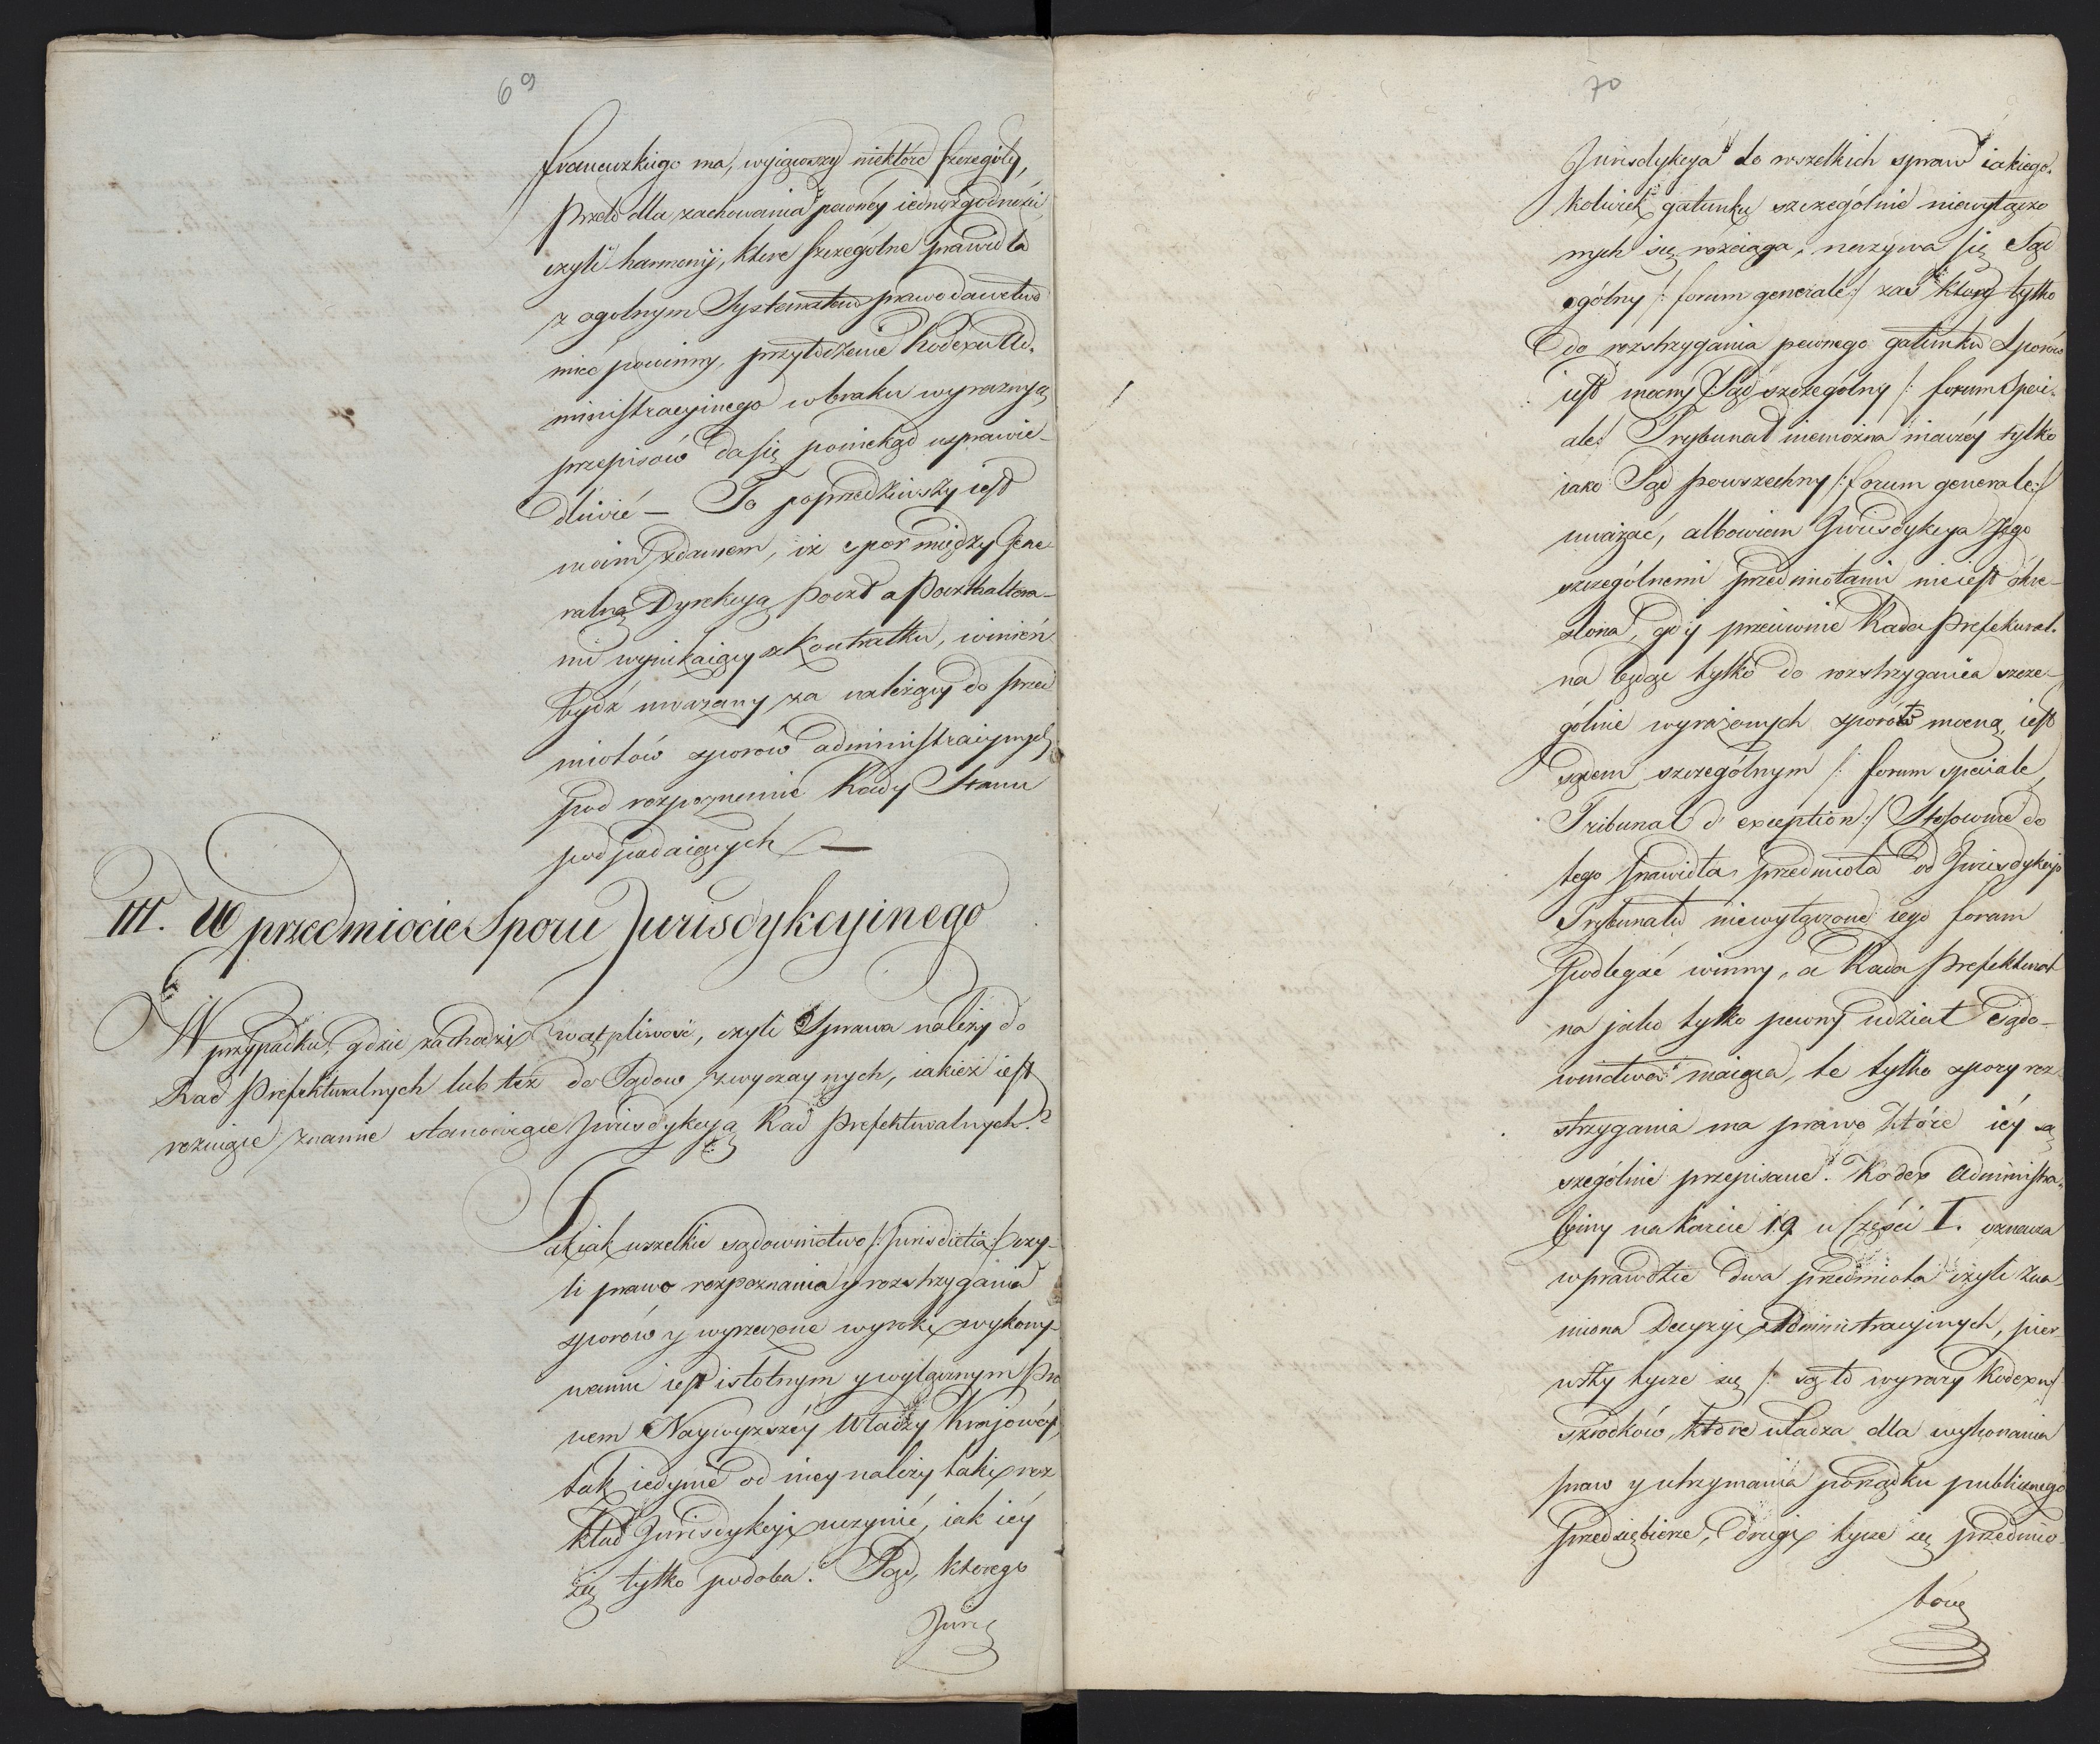 69
francuzkiego ma, wyiąwszy niektóre szczegóły,
przeto dla zachowania pewnéy iednozgodności
czyli harmonij, które szczególne prawidła
z ogolnym Systematem prawodawctwa
mieć powinny, przytoczenie Kodexu Ad-
ministracyinego w braku wyraznych
przepisów da się poniekąd usprawie-
dliwić — To poprzedziwszy iest
moim zdaniem, iż spor między Gene-
ralną Dyrekcyą Poczt a Poczthaltera-
mi wynikaiący z Kontraktu, winien
bydź uważany za należący do przed
miotów sporów administracyinych
pod rozpoznanie Rady Stanu
podpadaiących —
III. W przedmiocie Sporu Jurisdykcyinego
W przypadku, gdzie zachodzi wątpliwość, czyli Sprawa należy do
Rad Prefekturalnych lub też do Sądow zwyczaynych, iakież iest
rożniące znamie stanowiące Jurisdykcyą Rad Prefekturalnych?
Jak iak wszelkie sądownictwo /: Jurisdictia :/ czy-
li prawo rozpoznania y rozstrzygania
sporów y wyrzeczone wyroki wykony-
waniu iest istotnym y wyłącznym Pra
wem Naywyższéy Władzy Krajowéy,
tak iedynie od niey należy taki roz
kład Jurisdykcyi uczynić, iak iéy
się tylko podoba. Sąd, ktorego
Juris
70
Jurisdykcya do wszelkich spraw iakiego-
kolwiek gatunku szczególnie niewyłączo
nych się rozciąga, nazywa się Sąd
ogólny /: forum generale :/ zaś który tylko
do rozstrzygania pewnego gatunku Sporów
iest mocny Sąd szczególny /: forum Speci-
ale :/ Trybunał niemożna inaczéy tylko
iako Sąd powszechny /: forum generale :/
uważać, albowiem Jurisdykcya Jego
szczególnemi przedmiotami nie iest okre-
ślona, gdy przeciwnie Rada Prefektural-
na będąc tylko do rozstrzygania szcze-
gólnie wyrażonych sporów mocną, iest
sądem szczególnym /: forum speciale,
Tribunal d'exception :/ Stosownie do
tego prawidła przedmiota od Jurisdykcyi
Trybunału niewyłączone iego foram
podlegać winny, a Rada Prefektural
na jako tylko pewny udział Sądo-
wnictwa maiąca, te tylko spory roz
strzygania ma prawo które iéy są
szególnie przepisane. Kodex Administra-
cyiny na karcie 19 w Części I. oznacza
wprawdzie dwa przedmiota czyli zna
miona Decyzyi Administracyinych, pier-
wszy tycze się /: są to wyrazy Kodexu :/
Srzodków, które władza dla wykonania
praw y utrzymania porządku publicznego
przedsiębierze, drugi tycze się przedmio-
tów